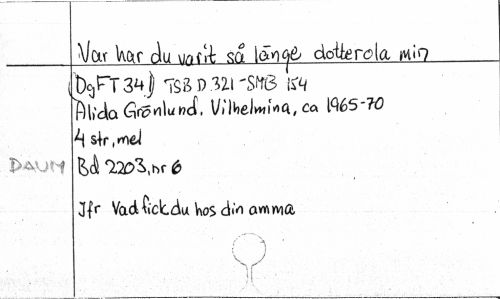 Var har du varit så länge dotterola min
(DgFT 34) TSB D 321 - SMB 154
Alida Grönlund, Vilhelmina, ca 1965-70
4 str, mel
DAUM Bd 2203, nr 6
Jfr Vad fick du hos din amma